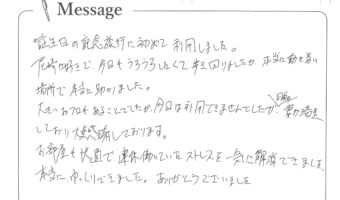 Message
誕生日の記念旅行に初めて利用しました。
尼崎が好きで、今日もうろうろしたくて歩き回りましたが、本当に動き易い
場所で本当に助かりました。
大きいおフロもあることでしたが、今日は利用できませんでしたが、
しており大感謝しております。
お部屋も快適で連休働いていたストレスを一気に解消できました。
本当にゆっくりできました。ありがとうございました